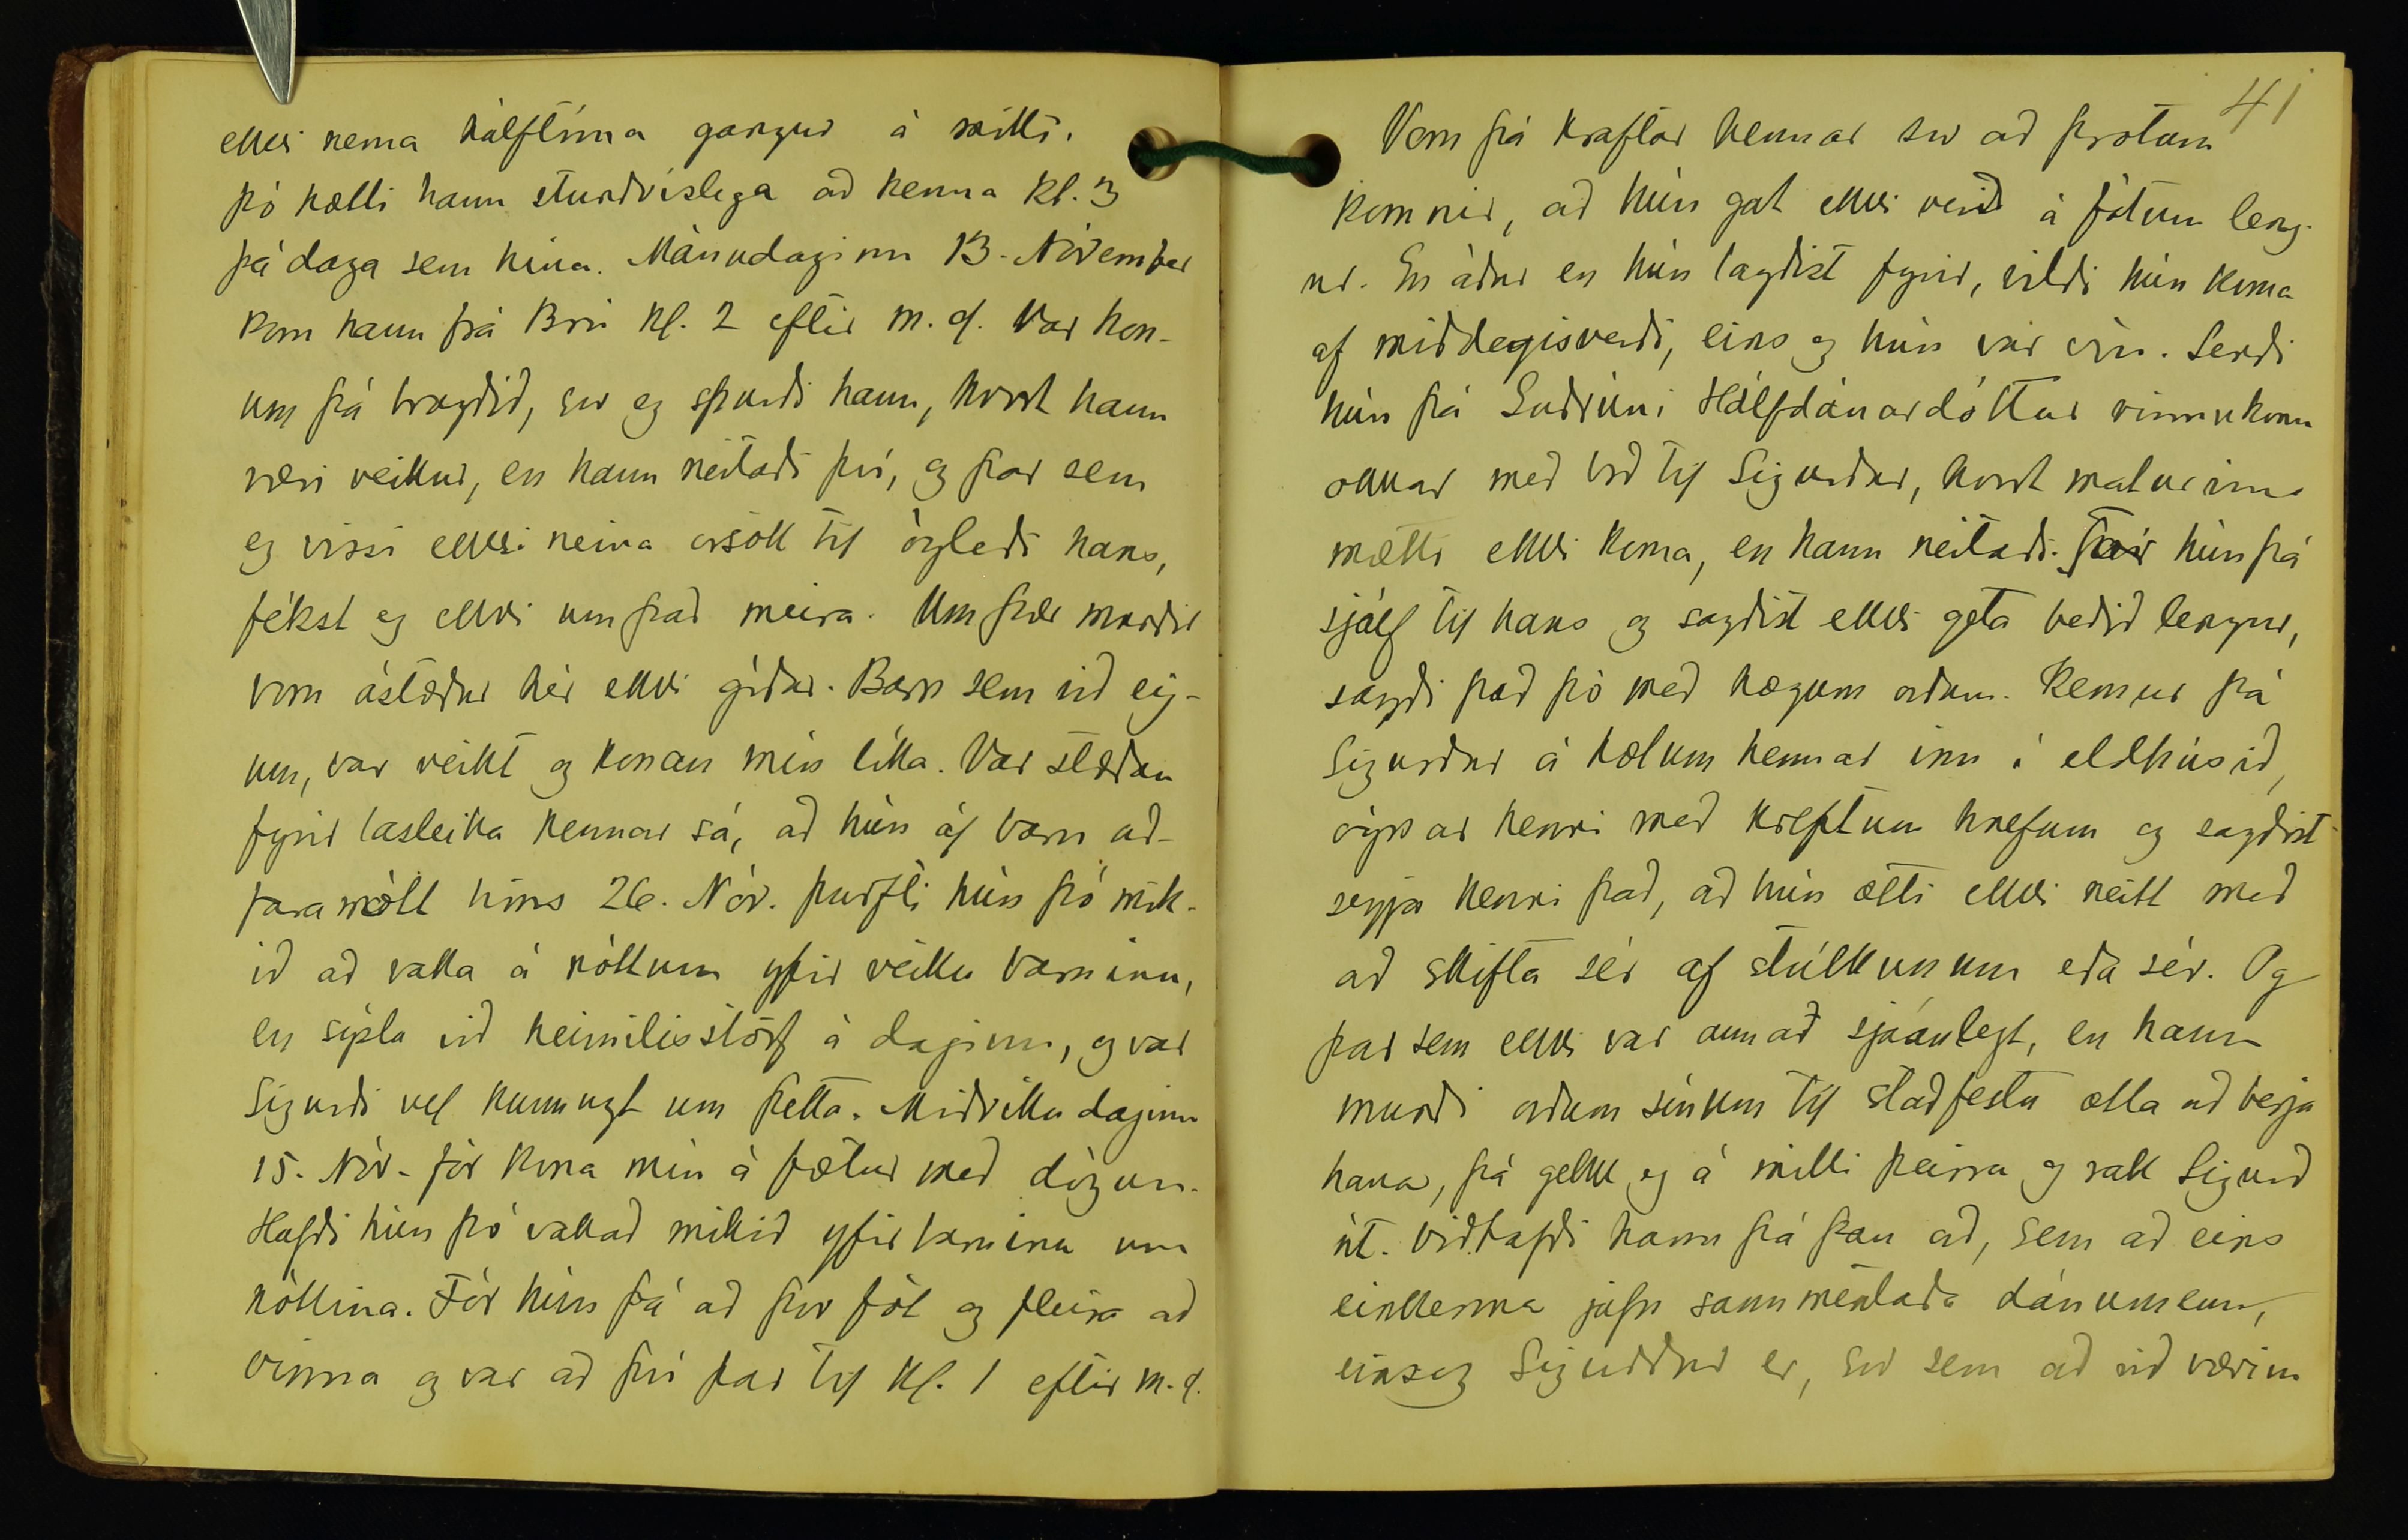 ekki nema hálftíma gangur á milli.
þó hætti hann stundvíslega að kenna kl. 3
þá daga sem hina. Mánudaginn 13. Nóvember
kom hann frá Brú kl. 2 eftir m. d. Var hon-
um þá brugðið, svo eg spurði hann, hvort hann
væri veikur, en hann neitaði því, og þar sem
eg vissi ekki neina orsök til ógleði hans,
fékst eg ekki um það meira. Um þær mundir
voru ástæður hér ekki góðar. Barn sem við eig-
um, var veikt og konan mín líka. Var stæðan
fyrir lasleika hennar sá, að hún ól barn að-
faranótt hins 26. Nóv. þurfti hún þó mik-
ið að vaka á nóttum yfir veiku barninu,
en sýsla við heimilisstörf á daginn, og var
Sigurði vel kunnugt um þetta. Miðvikudaginn
15. Nóv. fór kona mín á fætur með dögun.
Hafði hún þó vakað mikið yfir barninu um
nóttina. Fór hún þá að þvo föt og fleira að
vinna og var að því þar til kl. 1 eftir m. d.
41
Voru þá kraftar hennar svo að þrotum
komnir, að hún gat ekki verið á fótum leng-
ur. En áður en hún lagðist fyrir, vildi hún koma
af miðdegisverði, eins og hún var vön. Sendi
hún þá Guðrúni Hálfdánardóttur vinnukonu
okkar með boð til Sigurðar, hvort maturinn
mætti ekki koma, en hann neitaði. Fór hún þá
sjálf til hans og sagðist ekki geta beðið lengur,
sagði það þó með hægum orðum. Kemur þá
Sigurður á hælum hennar inn í eldhúsið,
ógnar henni með kreptum hnefum og sagðist
segja henni það, að hún ætti ekki neitt með
að skifta sér af stúlkunum eða sér. Og
þar sem ekki var annað sjáanlegt, en hann
mundi orðum sínum til staðfestu ætla að berja
hana, þá gekk eg á milli þeirra og rak Sigurð
út. Viðhafði hann þá þau orð, sem að eins
einkenna jafn sannmentaða dánumenn,
eins og Sigurður er, svo sem að við værum